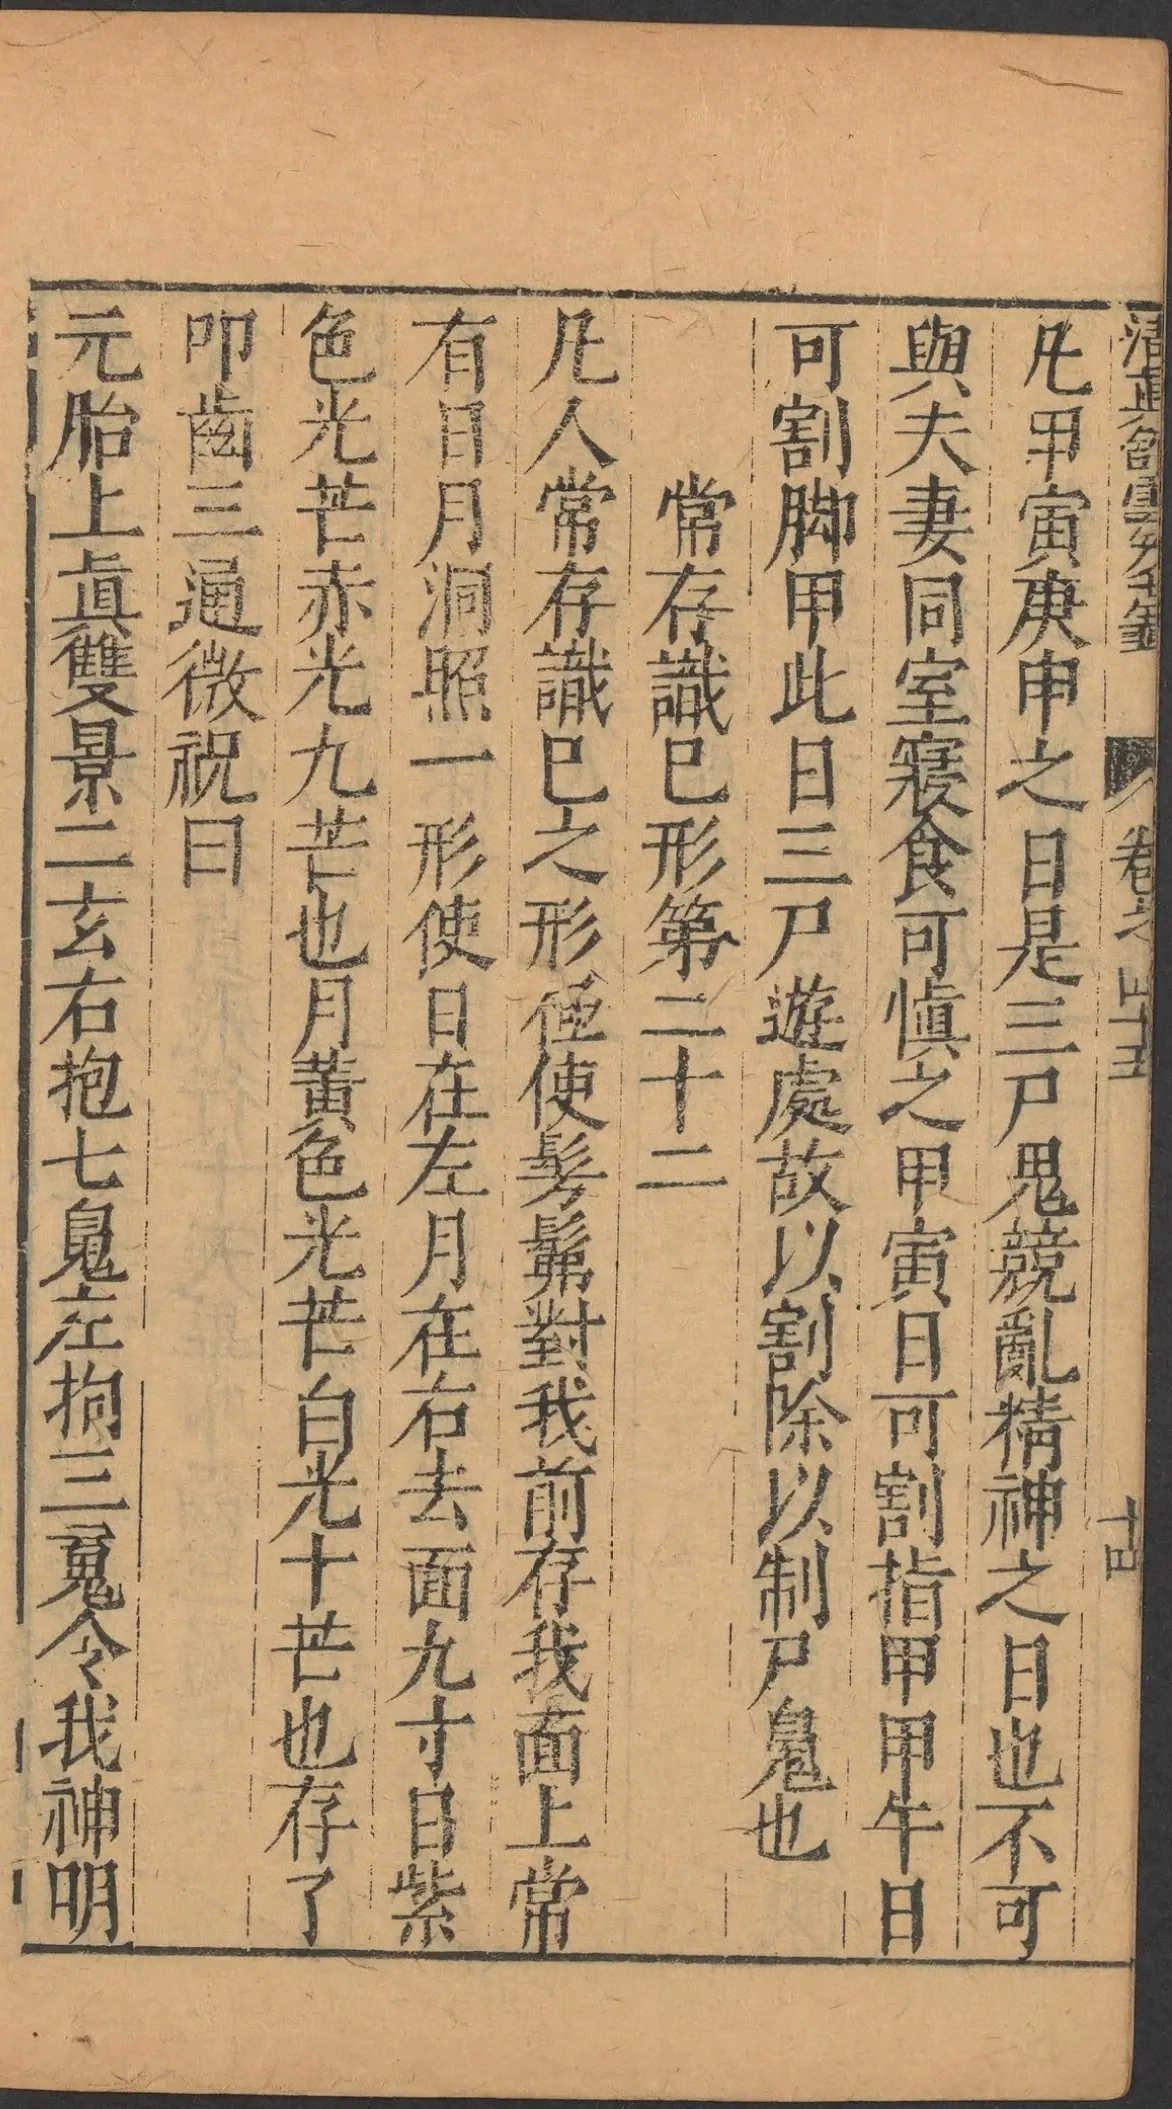 卷之四十五
十四
凡甲寅庚申之日是三尸鬼競亂精神之日也不可
與夫妻同室寢食可慎之甲寅日可割指甲甲午日
可割脚甲此日三尸遊處故以割除以制尸鬼也
常存識己形第二十二
凡人常存識己之形極使髣髴對我前存我面上常
有日月洞照一形使日在左月在右去面九寸日紫
色光芒赤光九芒也月黃色光芒白光十芒也存了
叩齒三通微祝曰
元胎上真雙景二玄右抱七魄左拘三魂令我神明